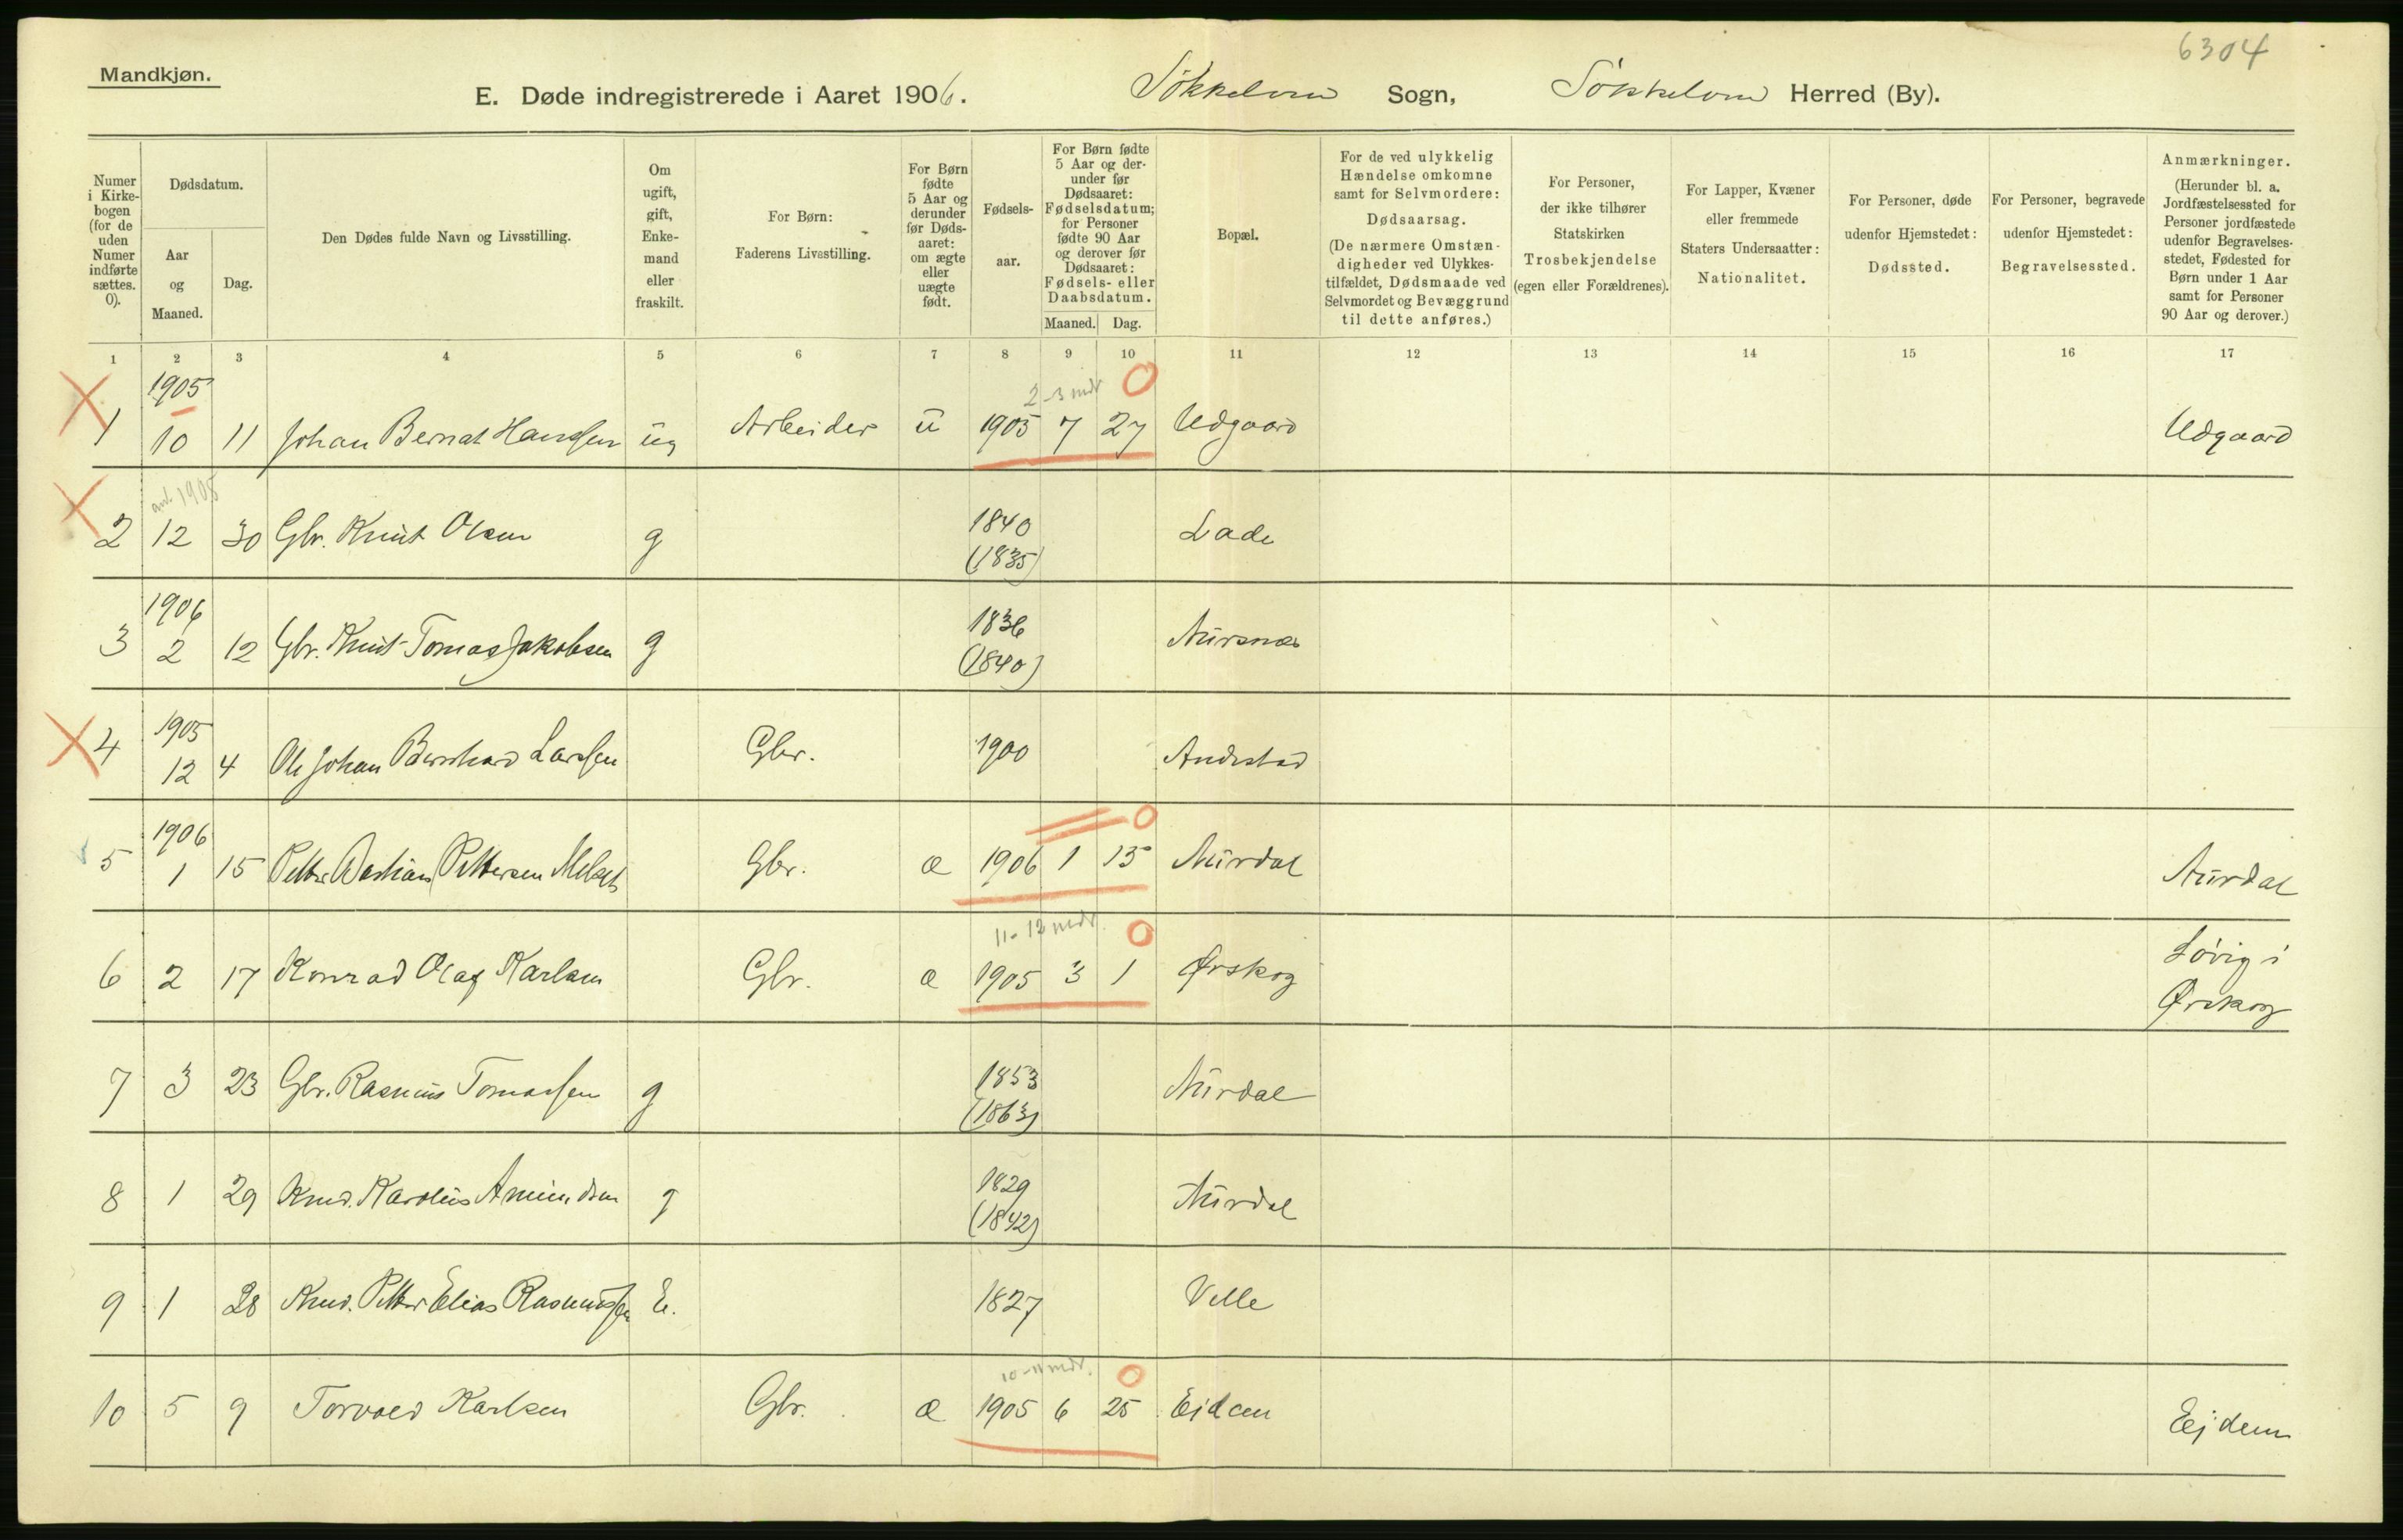 6304
Mandkjøn.
E. Døde indregistrerede i Aaret 1906. Søkkelven Sogn, Søkkelven Herred (By).
Numer i Kirkebogen (for de uden Numer indførte sættes. 0).
Dødsdatum.
Aar og Maaned.
Dag.
Den Dødes fulde Navn og Livsstilling.
Om ugift, gift, Enkemand eller fraskilt.
For Børn: Faderens Livsstilling.
For Børn fødte 5 Aar og derunder før Dødsaaret: om ægte eller uægte født.
Fødselsaar.
For Børn fødte 5 Aar og derunder før Dødsaaret: Fødselsdatum; for Personer fødte 90 Aar og derover før Dødsaaret: Fødsels- eller Daabsdatum.
Maaned. Dag.
Bopæl.
For de ved ulykkelig Hændelse omkomne samt for Selvmordere: Dødsaarsag. (De nærmere Omstændigheder ved Ulykkestilfældet, Dødsmaade ved Selvmordet og Bevæggrund til dette anføres.)
For Personer, der ikke tilhører Statskirken Trosbekjendelse (egen eller Forældrenes).
For Lapper, Kvæner eller fremmede Staters Undersaatter: Nationalitet.
For Personer, døde udenfor Hjemstedet: Dødssted.
For Personer, begravede udenfor Hjemstedet: Begravelsessted.
Anmærkninger. (Herunder bl. a. Jordfæstelsessted for Personer jordfæstede udenfor Begravelsesstedet, Fødested for Børn under 1 Aar samt for Personer 90 Aar og derover.)
1 2 3 4 5 6 7 8 9 10 11 12 13 14 15 16 17
1905 2-3 mdr 0
1 10 11 Johan Bernat Hanssen ug Arbeider u 1905 7 27 Udgaard Udgaard
ant. 1905
2 12 30 Gbr. Knut Olsen g 1840 Lade
(1835)
1906
3 2 12 Gbr. Knut Tomas Jakobsen g 1836 Aursnes
(1840)
1905
4 12 4 Ole Johan Bernhard Larssen Gbr. 1900 Andestad
1906 0
5 1 15 Petter Bastian Pettersen Melset Gbr. æ 1906 1 15 Aurdal Aurdal
11-12 mdr. 0
6 2 17 Konrad Olaf Karlsen Gbr. æ 1905 3 1 Ørskog Løvig i
Ørskog
7 3 23 Gbr. Rasmus Tomassen g 1853 Aurdal
(1863)
8 1 29 Knud Karolus Amundsen g 1829 Aurdal
(1842)
9 1 28 Petter Elias Rasmussen E. 1827 Velle
10-11 mdr. 0
10 5 9 Torvald Karlsen Gbr. æ 1905 6 25 Eidem Ejdem